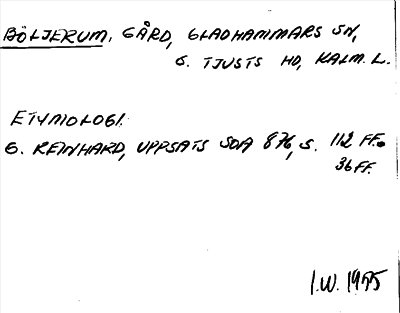 BÖLJERUM. GÅRD, GLADHAMMARS SN,
S. TJUSTS HD, KALM. L.
ETYMOLOGI.
G. REINHARD, UPPSATS SOA 876, S. 112 FF.
36 FF.
I.W. 1955